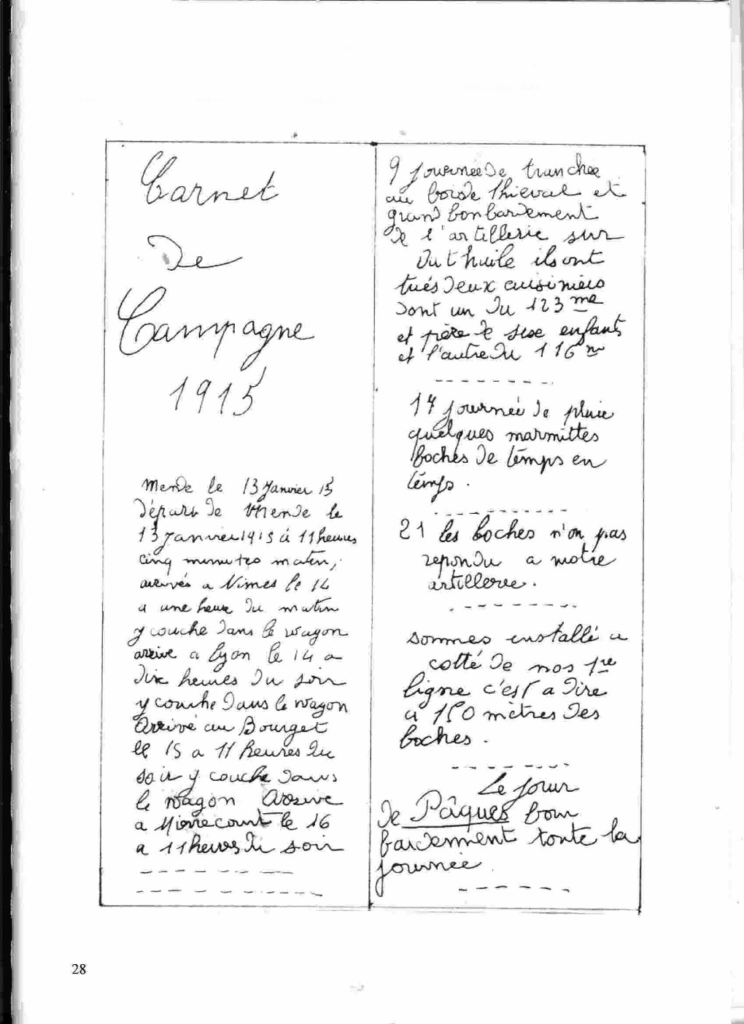 Carnet
De
Campagne
1915
Mende le 13 Janvier 15
Départ de Mende le
13 Janvier 1915 à 11 heures
cinq minutes matin,
arrivés a Nimes le 14
a une heure du matin
y couche dans le wagon
arrive a Lyon le 14 a
dix heures du soir
y couche dans le wagon
Arrivé au Bourget
le 15 a 11 heures du
soir y couche dans
le wagon Arrive
a le 16
a 11 heures du soir
9 journée de tranchee
au bois de Thieval et
grand bonbardement
de l'artillerie sur
ils ont
tués deux cuisiniers
dont un du 123 me
et père de six enfants
et l'autre du 116 m
17 journée de pluie
quelques marmittes
boches de temps en
temps.
21 les boches n'on pas
repondu a notre
artillerie.
sommes installé a
cotté de nos 1re
ligne c'est a dire
a 150 mètres des
boches.
Le jour
de Pâques bom
bardement toute la
journée.
28